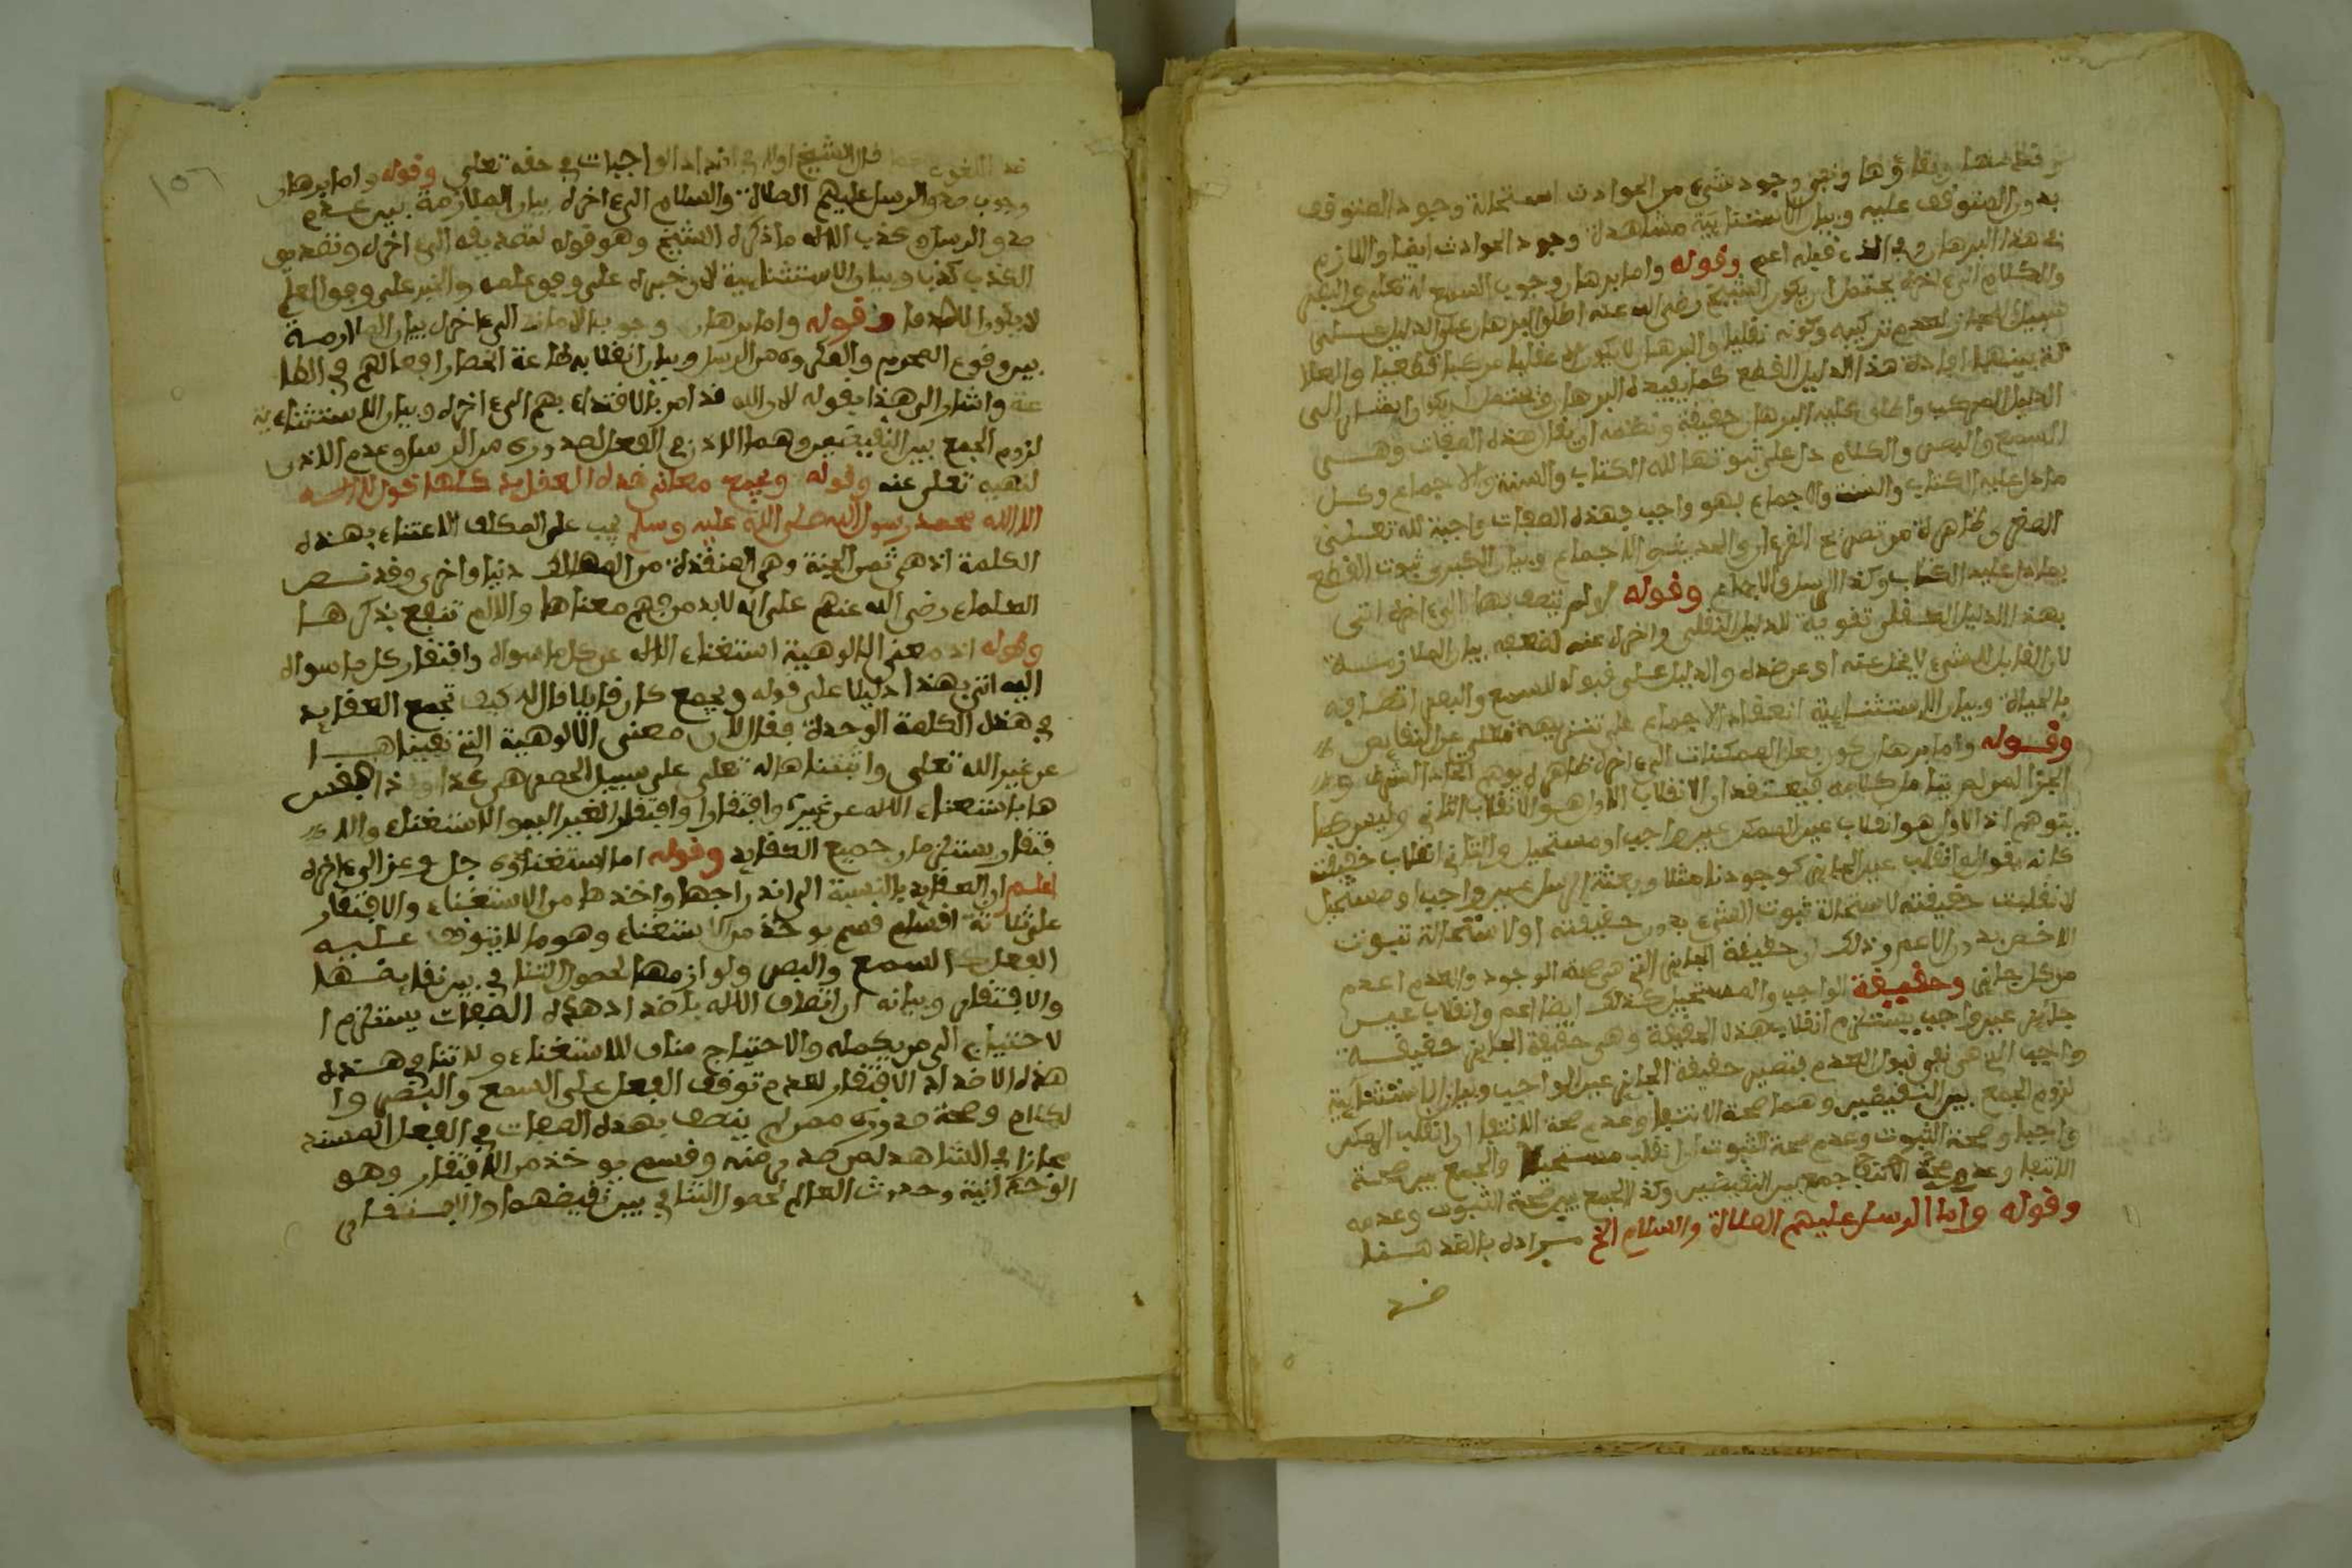 نفيها وبقاؤها ونفي وجود شيء من الحوادث استحالة وجود المتوقف
بدون المتوقف عليه وبيان الاستثنائية مشاهدة وجود الحوادث ايضا واللازم
في هذا البرهان وفي الذي قبله اعم وقوله واما برهان وجوب السمع له تعلى والبصر
والكلام الى اخره يحتمل ان يكون الشيخ رضي الله عنه اطلق البرهان على الدليل على
سبيل المجاز لعدم تركيبه وكونه نقليا والبرهان لا يكون الا عقليا مركبا قطعيا والعلا
قة بينهما افادة هذا الدليل القطع كما يفيده البرهان ويحتمل ان يكون اشار الى
الدليل المركب واطلق عليه البرهان حقيقة ونظمه ان يقال هذه الصفات وهي
السمع والبصر والكلام دل على ثبوتها لله الكتاب والسنة والاجماع وكل
ما دل عليه الكتاب والسنة والاجماع فهو واجب فهذه الصفات واجبة لله تعلى
الصغرى ظاهرة من تصريح القرءان والحديث والاجماع وبيان الكبرى ثبوت القطع
بما دل عليه الكتاب وكذا السنة والاجماع وقوله لو لم يتصف بها الى اخره اتى
بهذا الدليل العقلي تقوية للدليل النقلي واخره عنه لضعفه بيان الملازمة
لان القابل للشيء لا يخلو عنه او عن ضده والدليل على قبوله للسمع والبصر اتصافه
بالحياة وبيان الاستثنائية انعقاد الاجماع على تنزيهه تعلى عن النقايص
وقوله واما برهان كون فعل الممكنات الى اخره ظاهره يوهم اتحاد الشرط و
الجزا لمن لم يتامل كلامه فيعتقد ان الانقلاب الاول هو الانقلاب الثاني وليس كما
يتوهم اذ الاول هو انقلاب عين الممكن عين واجب او مستحيل والثاني انقلاب حقيقته
كانه يقول لو انقلب عين الجايز كوجودنا مثلا وبعثة الرسل عين واجب او مستحيل
لانقلبت حقيقته لاستحالة ثبوت الشيء بدون حقيقته او لاستحالة ثبوت
الاخص بدون الاعم وذلك ان حقيقة الجايز التي هي صحة الوجود والعدم اعم
من كل جايز وحقيقة الواجب والمستحيل كذلك ايضا اعم وانقلاب عين
جايز عين واجب يستلزم انقلاب هذه الحقيقة وهي حقيقة الجايز حقيقة
واجب التي هي نفي قبول العدم فتصير حقيقة الجايز عين الواجب وبيان الاستثنائية
لزوم الجمع بين النقيضين وهما صحة الانتفا وعدم صحة الانتفا ان انقلب الممكن
واجبا وصحة الثبوت وعدم صحة الثبوت ان انقلب مستحيلا والجمع بين صحة
الانتفا وعدم صحة الانتفا جمع بين النقيضين وكذا الجمع بين صحة الثبوت وعدمه
وقوله واما الرسل عليهم الصلاة والسلام الخ مراده بالقد هنا
ضد
ضد اللغوي قال الشيخ اولا في اضداد الواجبات في حقه تعلى وقوله واما برهان
وجوب صدق الرسل عليهم الصلاة والسلام الى اخره بيان الملازمة بين عدم
صدق الرسل وكذب الاله ما ذكره الشيخ وهو قوله لتصديقه الى اخره وتصديق
الكذب كذب وبيان الاستثنائية لان خبره على وفق علمه والخبر على وفق العلم
لا يكون الا صدقا وقوله واما برهان وجوب الامانة الى اخره بيان الملازمة
بين وقوع المحرم والمكروه من الرسل وبيان انقلابه طاعة انحصار افعالهم في الطا
عة واشار الى هذا بقوله لان الله قد امر بالاقتداء بهم الى اخره وبيان الاستثنائية
لزوم الجمع بين النقيضين وهما الاذن في الفعل الصدوري من الرسل وعدم الاذن
لنهيه تعلى عنه وقوله ويجمع معاني هذه العقايد كلها قول لا اله
الا الله محمد رسول الله صلى الله عليه وسلم يجب على المكلف الاعتناء بهذه
الكلمة اذ هي ثمن الجنة وهي المنقذة من المهالك دنيا واخرى وقد نص
العلماء رضي الله عنهم على انه لا بد من فهم معناها والا لم تنفع ذكرها
وقوله اذ معنى الالوهية استغناء الاله عن كل ما سواه وافتقار كل ما سواه
اليه اتى بهذا دليلا على قوله ويجمع كان قايلا قال له كيف تجمع العقايد
في هذه الكلمة الوحدة فقال لان معنى الالوهية التي نفيناها
عن غير الله تعلى واثبتناها له تعلى على سبيل الحصر هي كذا واذ افسر
ها باستغناء الاله عن غيره وافتقار الغير اليه والاستغناء والا
فتقار يستلزمان جميع العقايد وقوله اما استغناؤه جل وعز الى اخره
اعلم ان العقايد بالنسبة الى اندراجها واخذها من الاستغناء والافتقار
على ثلاثة اقسام قسم يوخذ من الاستغناء وهو ما لا يتوقف عليه
الفعل كالسمع والبصر ولوازمها لحصول التنافي بين نقايضها
والافتقار وبيانه ان اتصاف الاله باضداد هذه الصفات يستلزم ا
لاحتياج الى من يكمله والاحتياج مناف للاستغناء ولا تنافي هذه
هذه الاضداد الافتقار لعدم توقف الفعل على السمع والبصر وا
لكلام وصحة صدوره ممن لم يتصف بهذه الصفات في الفعل المسند
مجازا في الشاهد لمن صدر منه وقسم يوخذ من الافتقار وهو
الوحدانية وحدوث العالم لحصول التنافي بين نقيضهما والافتقار